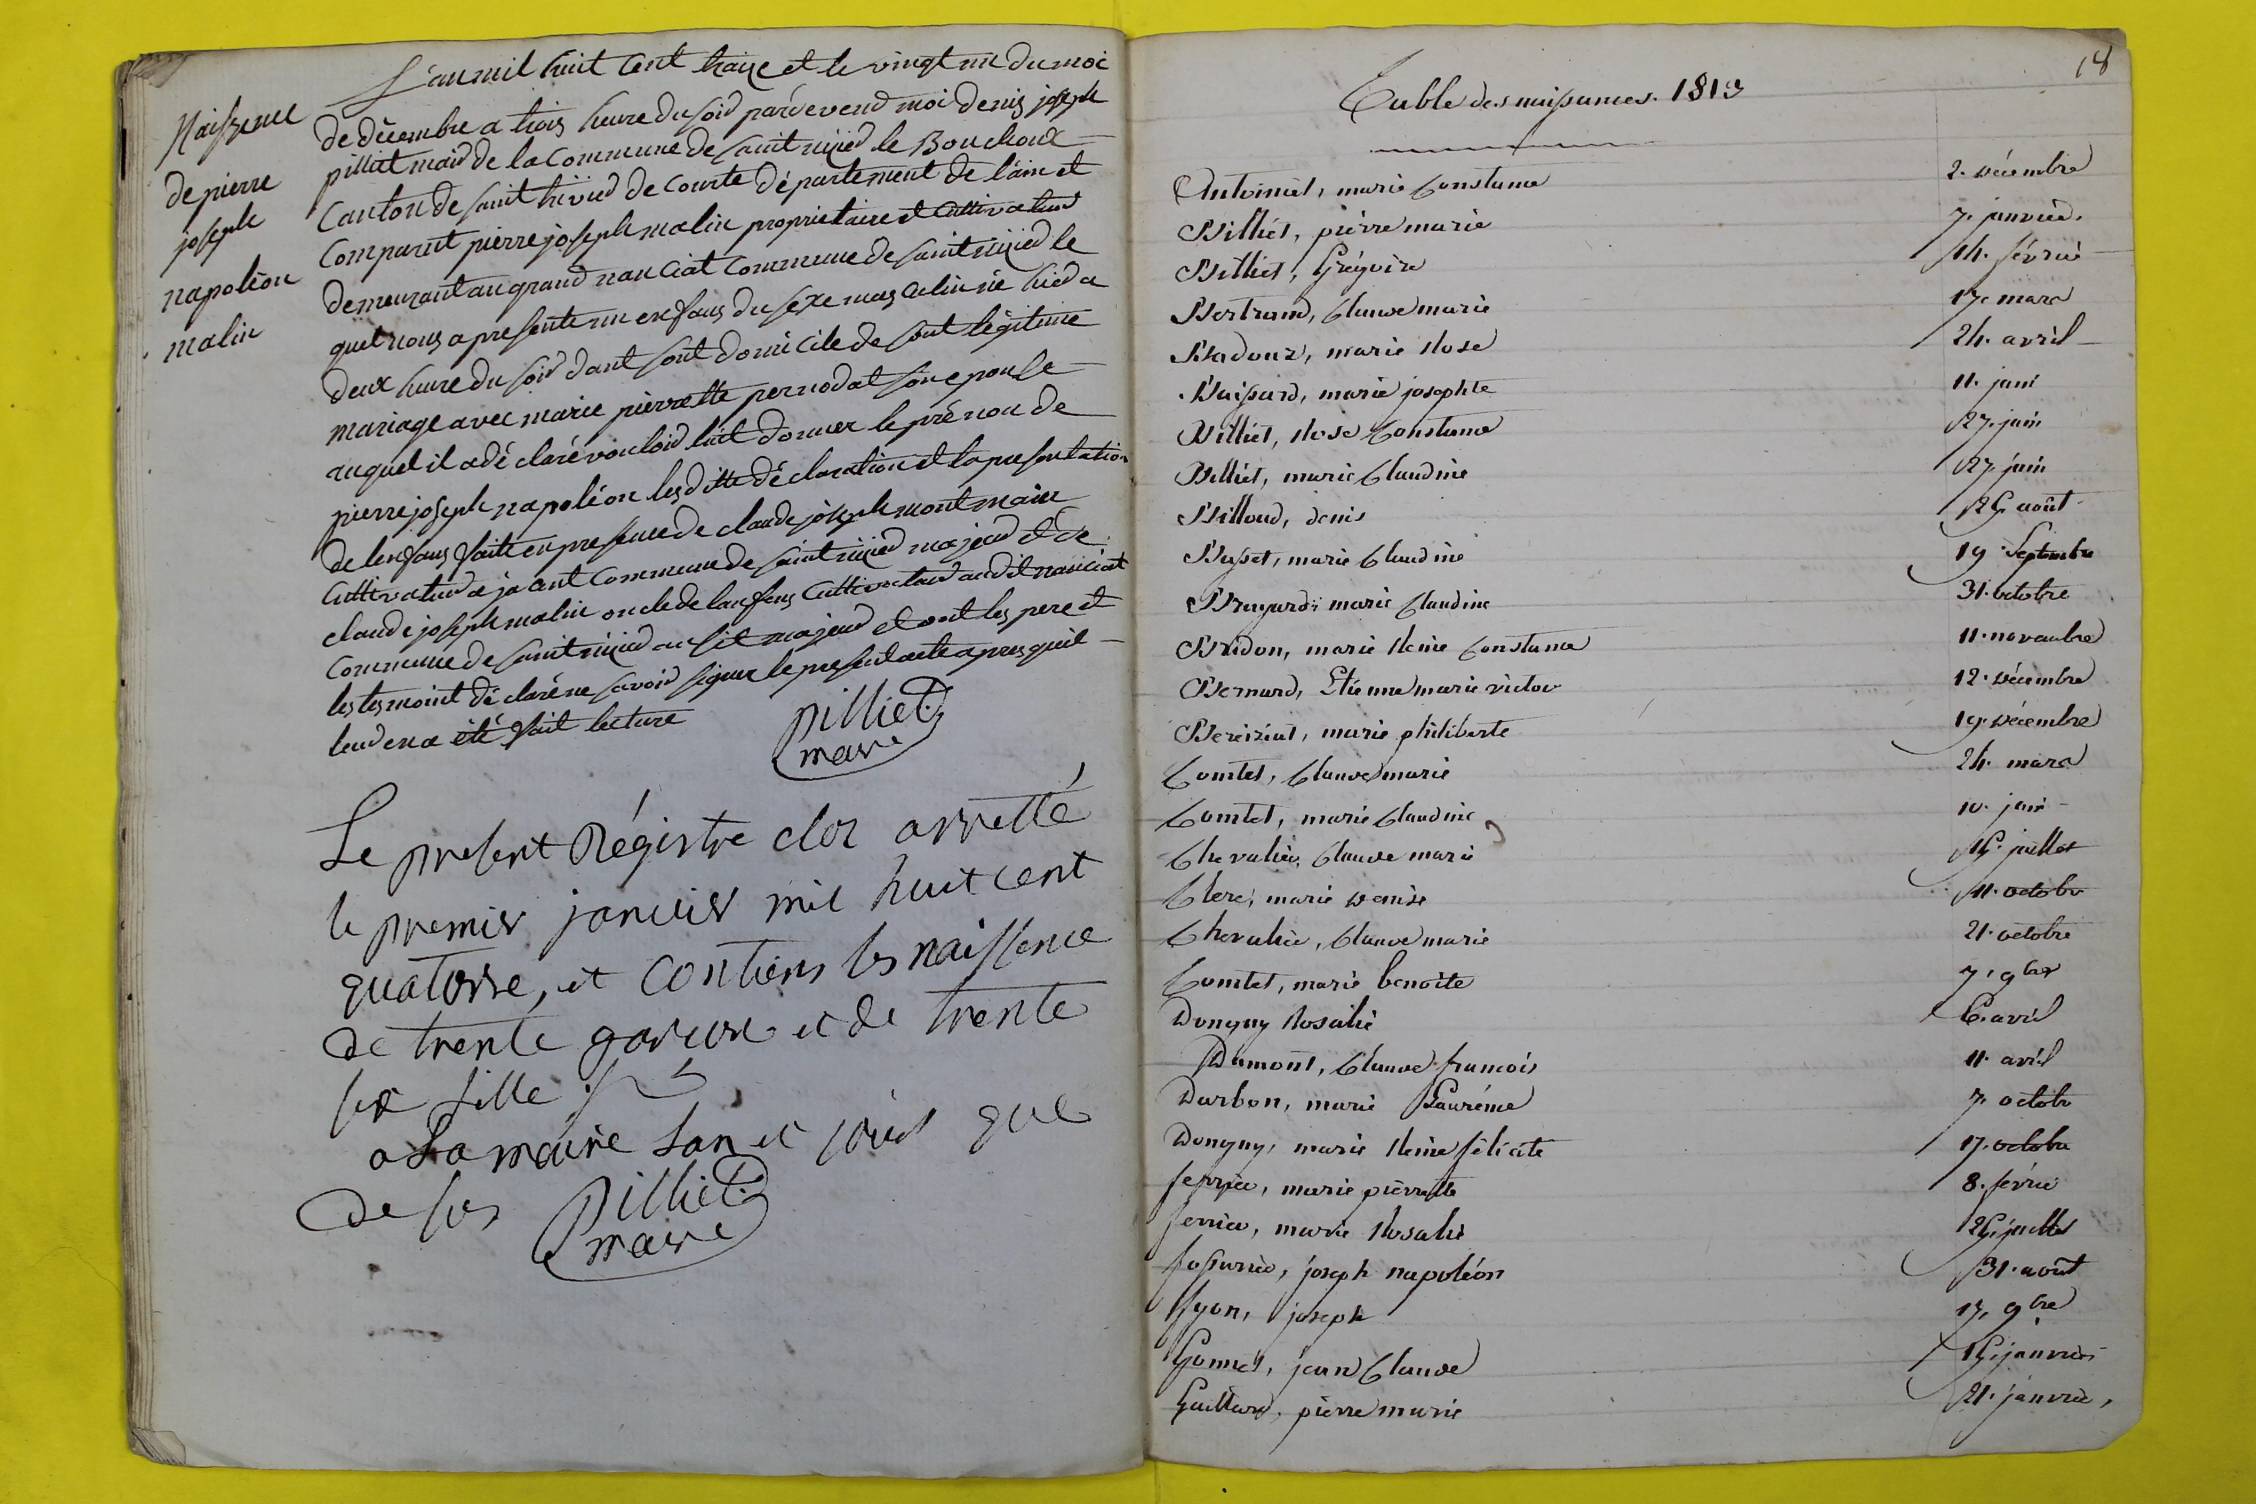 Naissence
de pierre
joseph
napoléon
malin
L'an mil huit cent traize et le vingt un du moi
de décembre a trois heure du soir pardevend moi denis joseph
pilliet maire de la Commune de saint nizied le Bouchoux
Canton de saint trivied de Courte département de lain et
Comparut pierre joseph malin propriétaire et Cultivateur
demeurant au grand nanciat Commune de saint nizied le
quel nous a presente un enfans du sexe masculin né hied a
deux heure du soir dant sont domicile de sont légitime
mariage avec marie pierrette pernodat son epouse
auquel il a déclaré vouloir luit donner le prénon de
pierre joseph napoléon lesditte déclaration et la presentation
de lenfans faite en presence de claude joseph montmain
Cultivateur a jajant Commune de saint nizied majeur et de
claude joseph malin oncle de lanfans Cultivateur audit nanciat
Commune de saint nizied ausit majeur et ont les pere et
les tesmoint déclaré ne savoir signer le present acte apres quil
leur en a été fait lecture
pilliet
maire
Le present Régistre cloz arretté
le premier janvier mil huit cent
quatorse, et Contiens les naissence
de trente garcon et de trente
six fille
a La mairie Lan et jours que
de sus
pilliet
maire
18
Table des naissances. 1813
Antoinet, marie Constance 2. décembre
Billiet, pierre marie 7. janvier.
Billiet, Grégoire 14. février
Bertrand, Claude marie 17. mars
Badoux, marie Rose 24. avril
Buisard, marie josephte 11. juin
Billiet, Rose Constance 27. juin
Billiet, marie Claudine 27. juin
Billoud, denis 25. août
Buset, marie Claudine 19. Septembre
Bragard, marie Claudine 31. octobre
Bridon, marie Reine Constance 11. novembre
Bernard, Etienne marie victor 12. décembre
Bereiziat, marie philiberte 19. décembre
Comtet, Claude marie 24. mars
Comtet, marie Claudine 10. juin
Chevalier, Claude marie 15. juillet
Clerc, marie denise 11. octobre
Chevalier, Claude marie 21. octobre
Comtet, marie benoite 7. 9bre
Donguy Rosalie 6. avril
Dumont, Claude francois 11. avril
Darbon, marie Laurence 7. octobr
Donguy, marie Reine félicité 17. octobre
ferrier, marie pierrette 8. février
ferrier, marie Rosalie 25. juillet
fossurier, joseph napoléon 31. août
fyon, joseph 13. 9bre
Gonnet, jean Claude 15. janvier
Guillard, pierre marie 21. janvier,